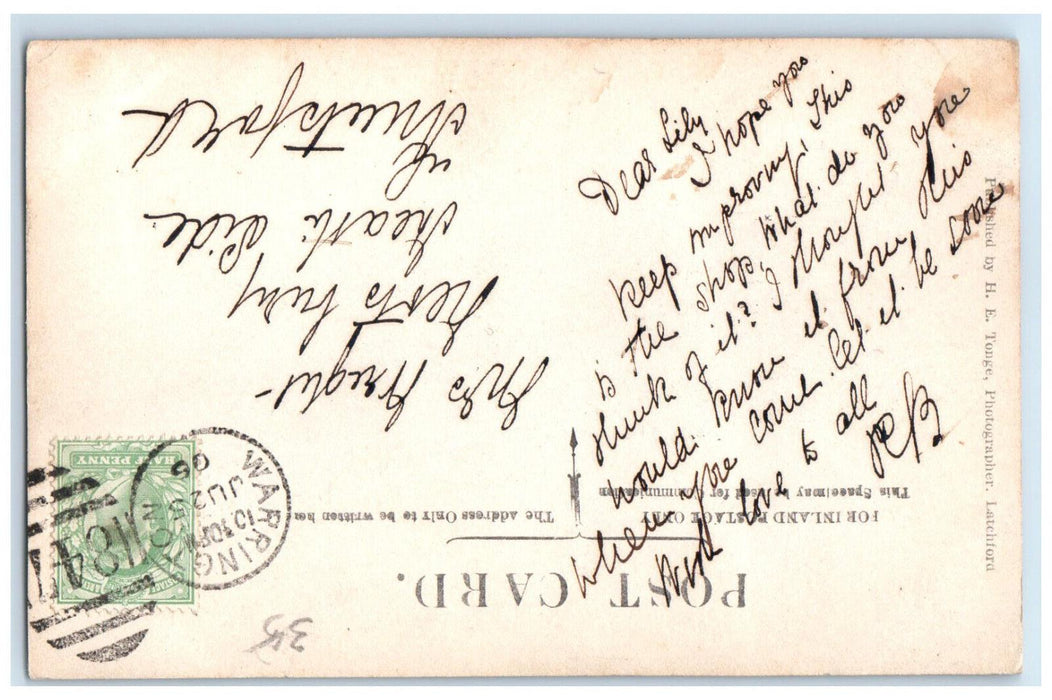 POST CARD.
FOR INLAND POSTAGE ONLY
This Space may be used for Communication
The Address Only to be written here
Dear Lily
I hope you
keep improving, This
is the shops, What do you
think of it? I thought you
would know it from this
when you come let it be soon
With love to all
RB
Mrs Wright
Heath Side
Knutsford
HALF PENNY
WARRINGTON
10.30PM
JU 25
06
847
Published by H. E. Tonge, Photographer, Latchford